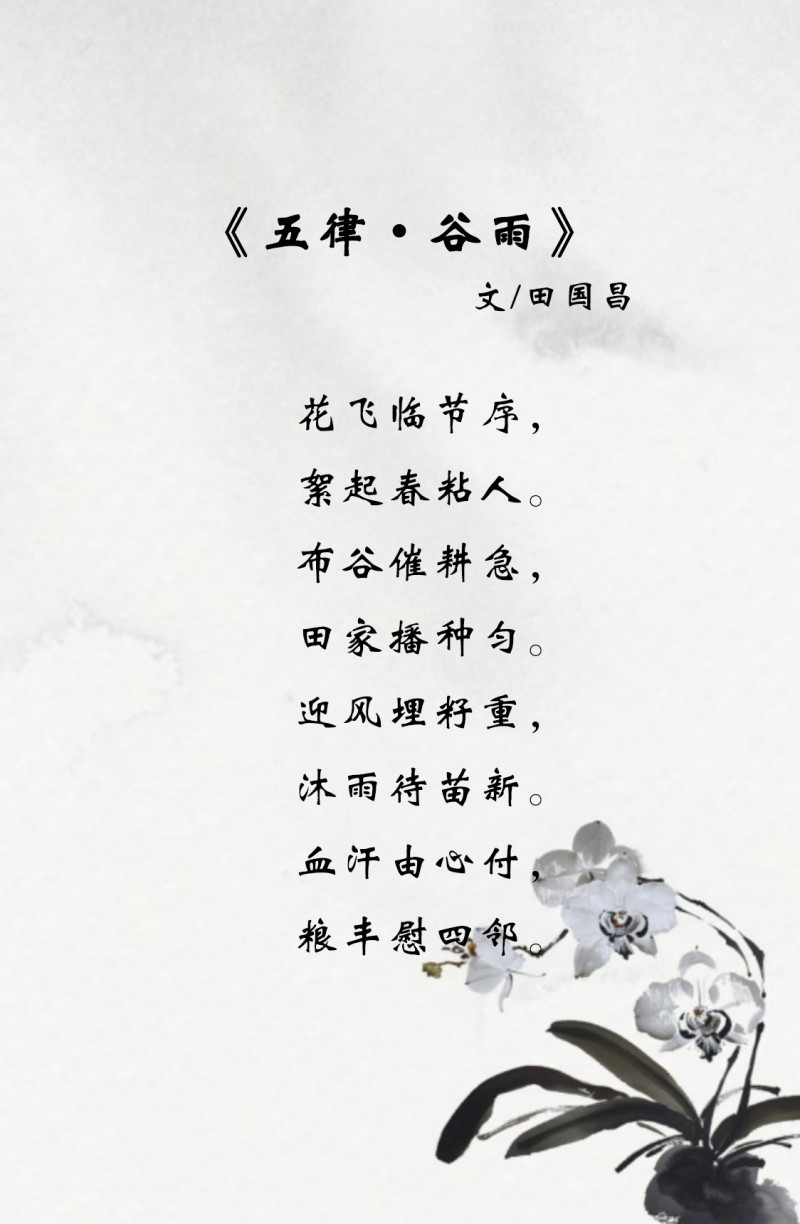 《五律·谷雨》
文/田国昌
花飞临节序，
絮起春粘人。
布谷催耕急，
田家播种匀。
迎风埋籽重，
沐雨待苗新。
血汗由心付，
粮丰慰四邻。